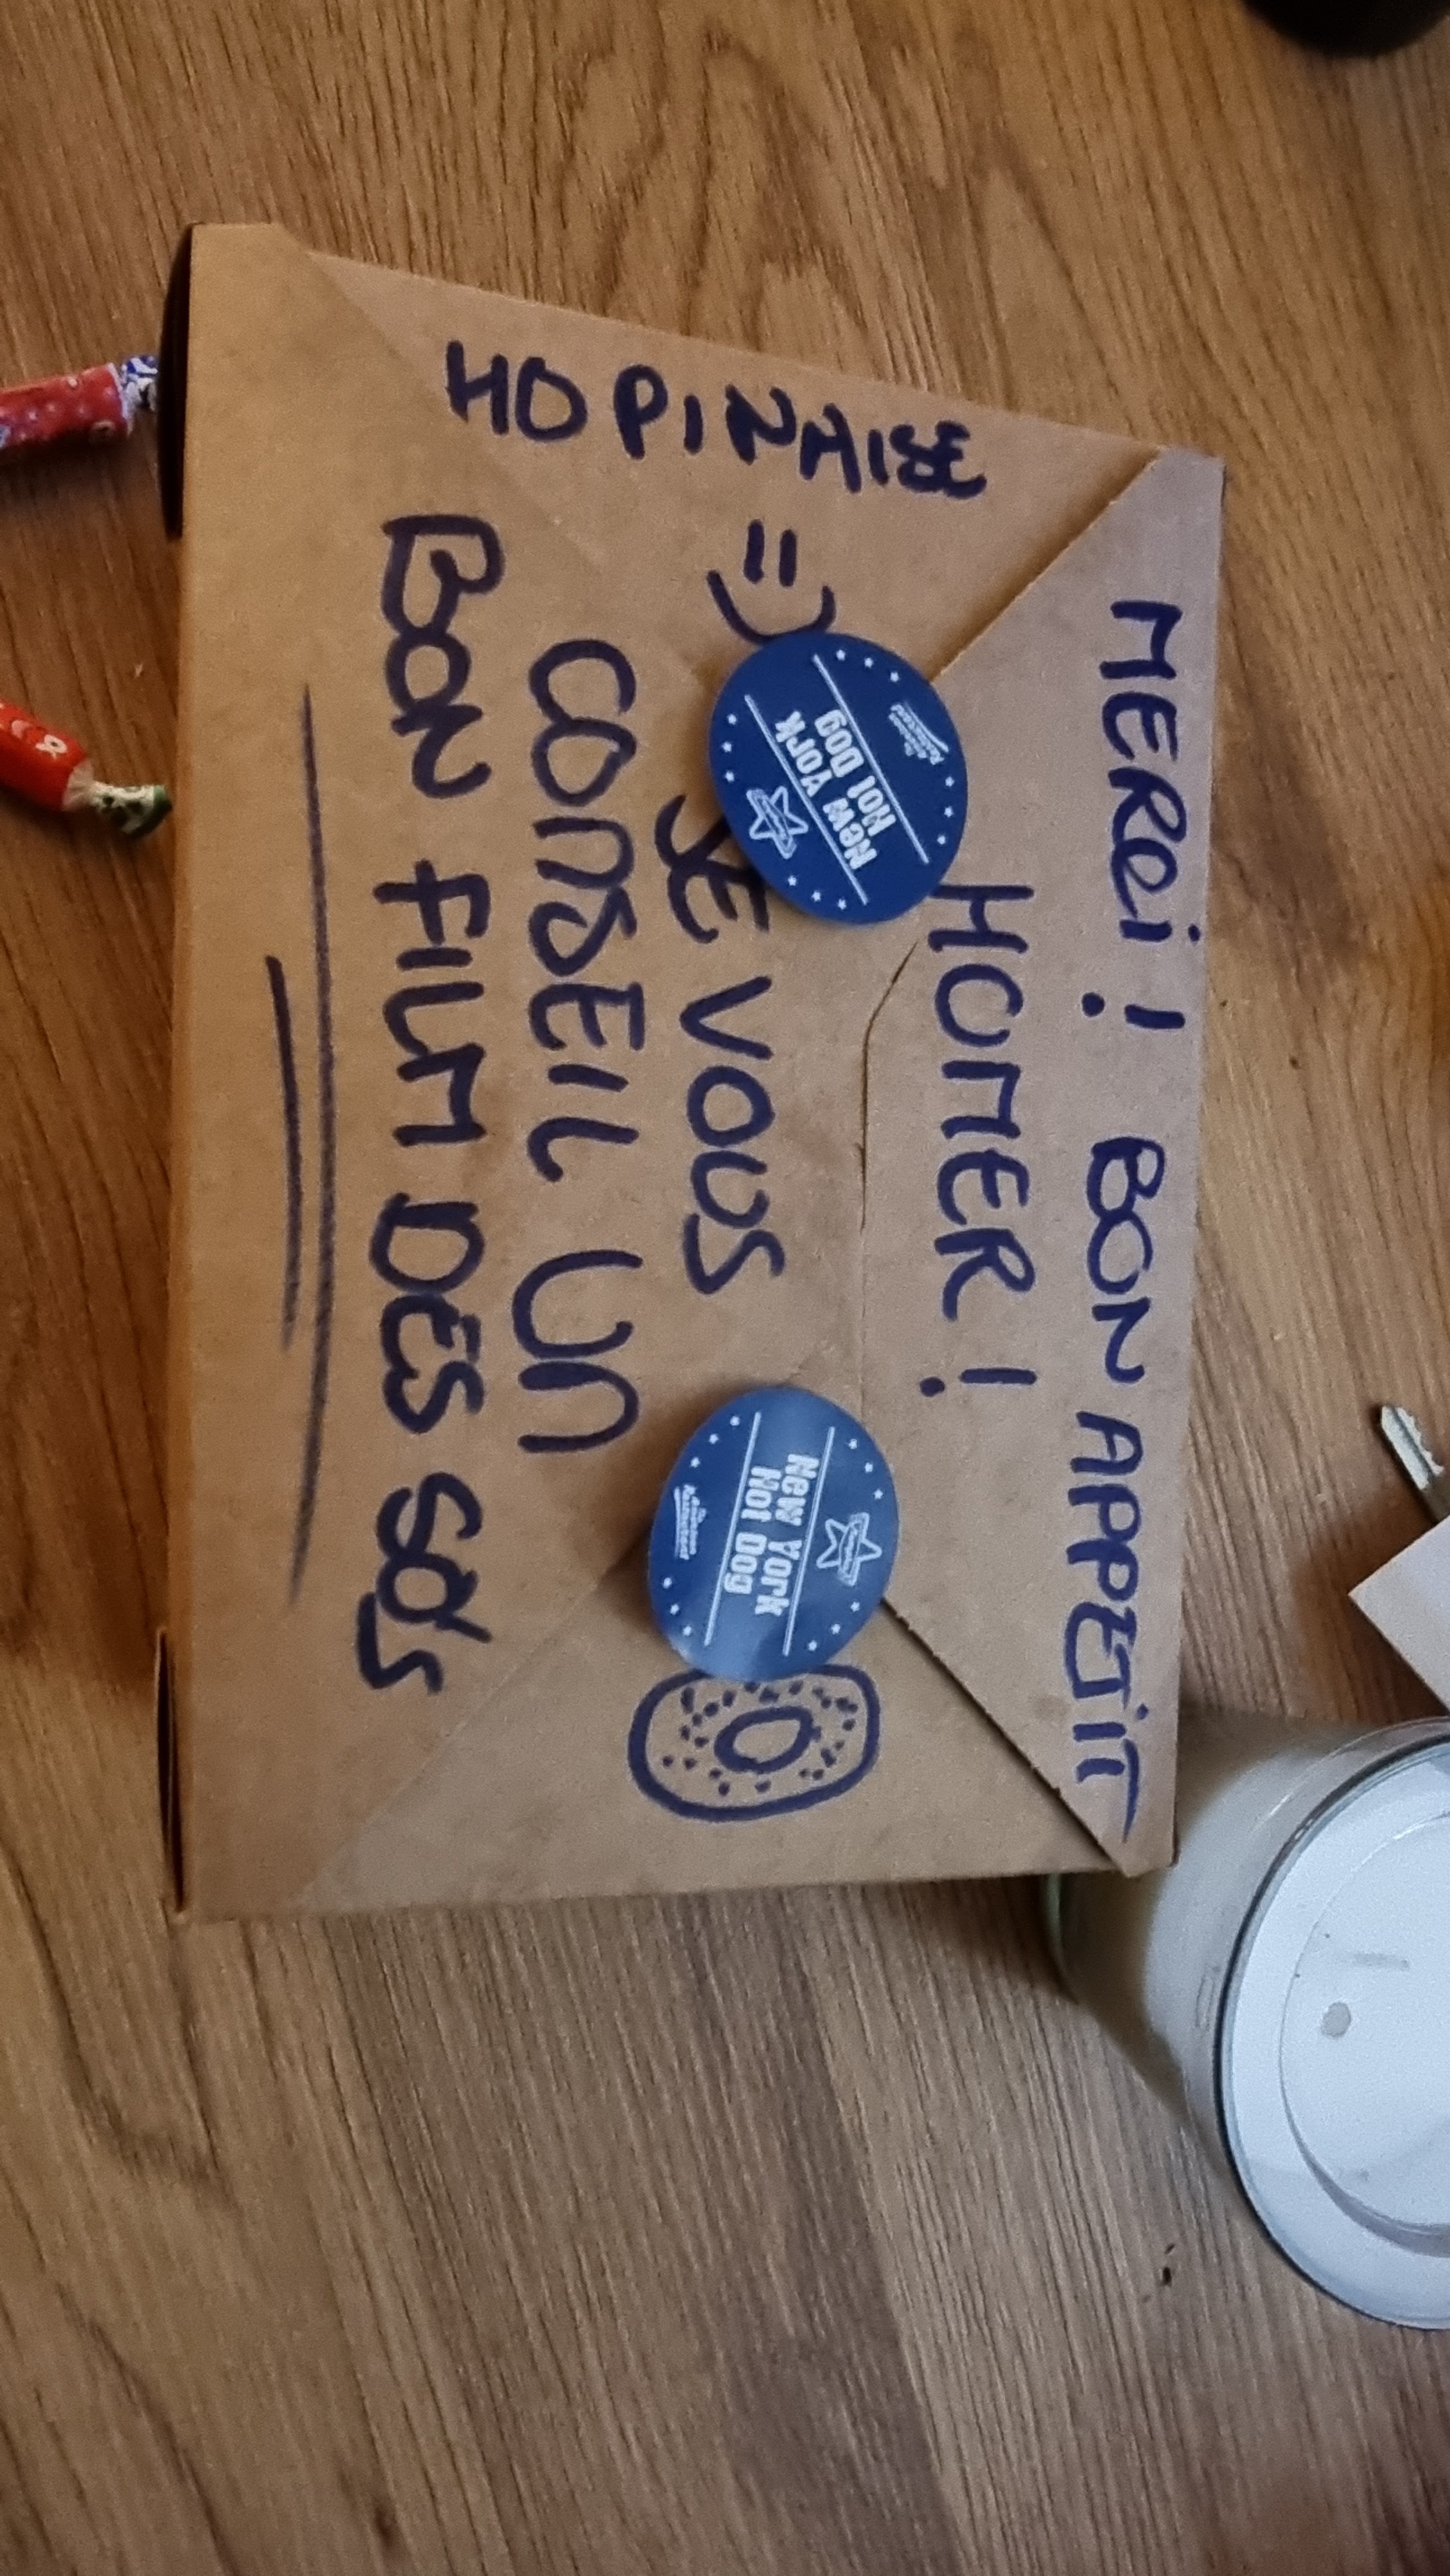 MERCi ! BON APPETiT
HOMER !
JE VOUS
CONSEIL UN
BON FILM DES 80's
HOPINAISE
=)
New York
Hot Dog
New York
Hot Dog